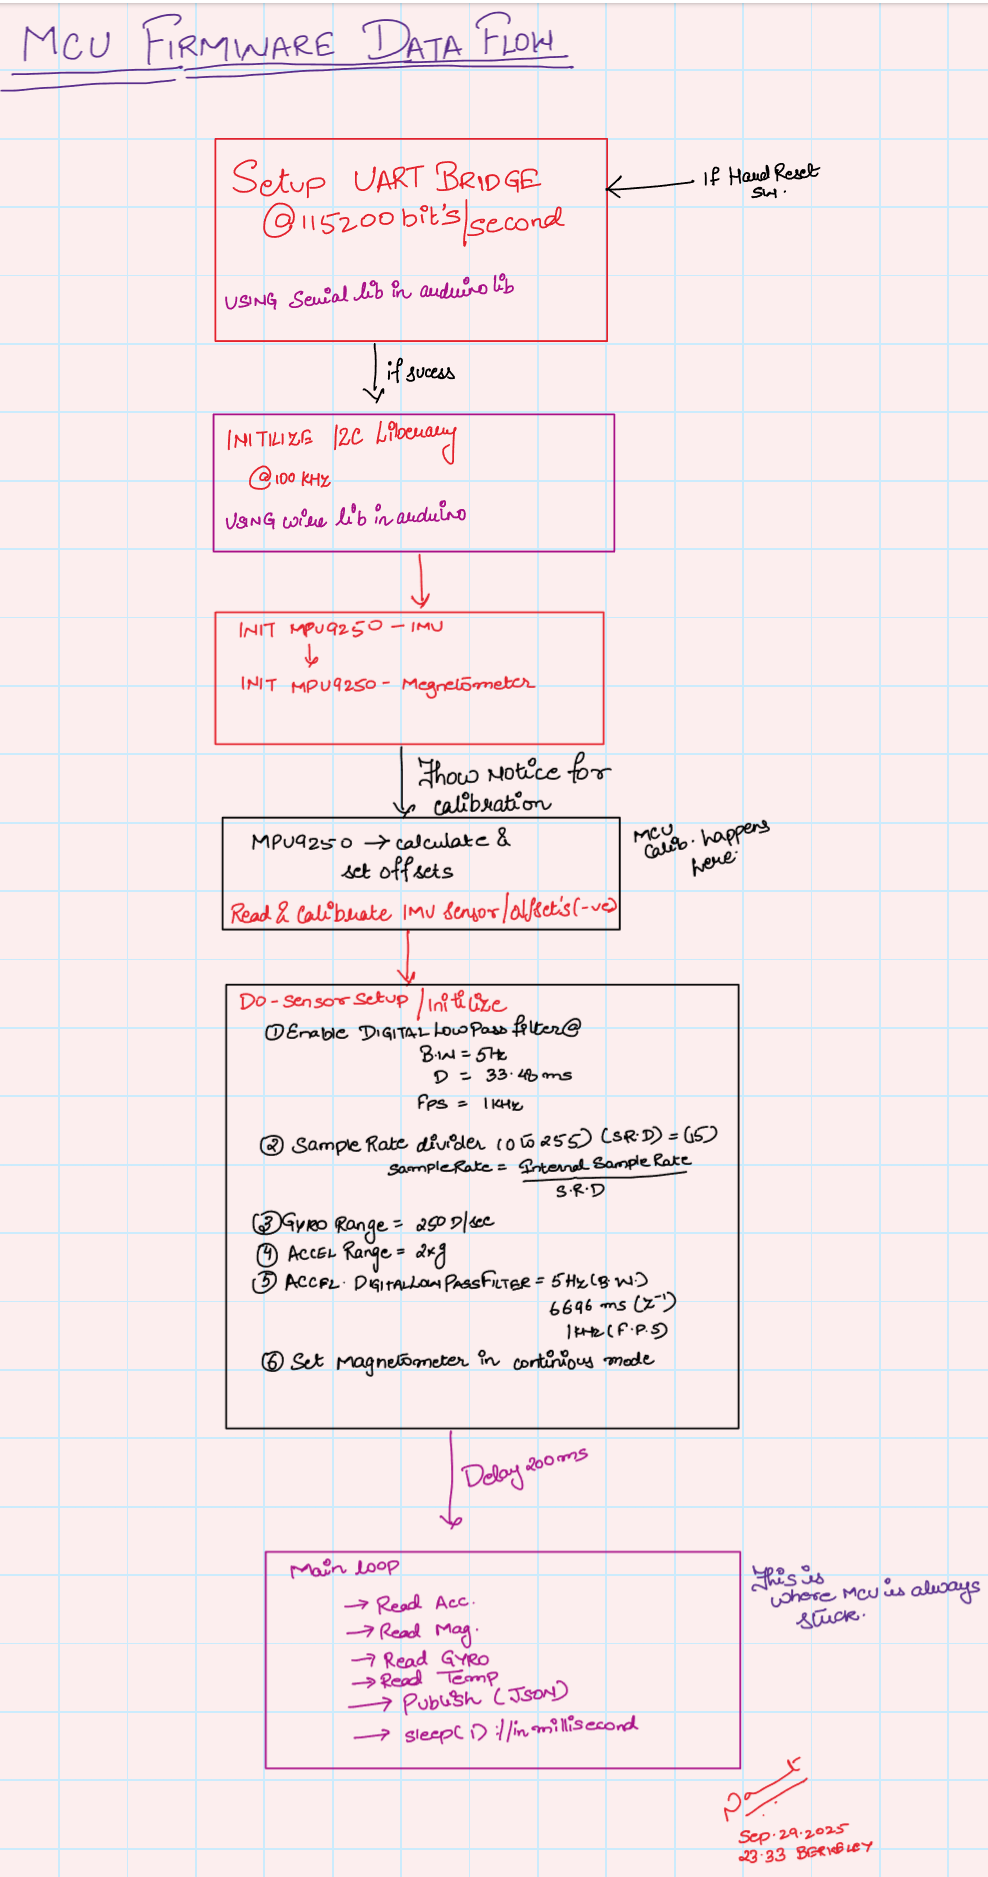 MCU FIRMWARE DATA FLOW
Setup UART BRIDGE
@115200 bit's/second
USING Serial lib in arduino lib
If Hard Reset
sw.
if sucess
INITILIZE I2C Liberary
@100 KHz
USING wire lib in arduino
INIT MPU9250 - IMU
↓
INIT MPU9250 - Megnetometer
Thow Notice for
calibration
MPU9250 → calculate &
set offsets
Read & Calibrate IMU sensor/offset's (-ve)
MCU
Calib. happens
here.
Do-sensor setup/Initilize
① Enable DIGITAL Low Pass filter @
B.W = 5Hz
D = 33.48 ms
Fps = 1KHz
② Sample Rate divider (0 to 255) (S.R.D) = (15)
Sample Rate = Internal Sample Rate
S.R.D
③ GYRO Range = 250 D/sec
④ ACCEL Range = 2xg
⑤ ACCEL. DIGITAL LOW PASS FILTER = 5Hz (B.W.)
6696 ms (Z⁻¹)
1kHz (F.P.S)
⑥ Set Magnetometer in continious mode
Delay 200ms
Main loop
→ Read Acc.
→ Read Mag.
→ Read GYRO
→ Read Temp
→ Publish (JSON)
→ sleep(1) ://in millisecond
This is
where MCU is always
stuck.
Sep.29.2025
23:33 BERKELEY